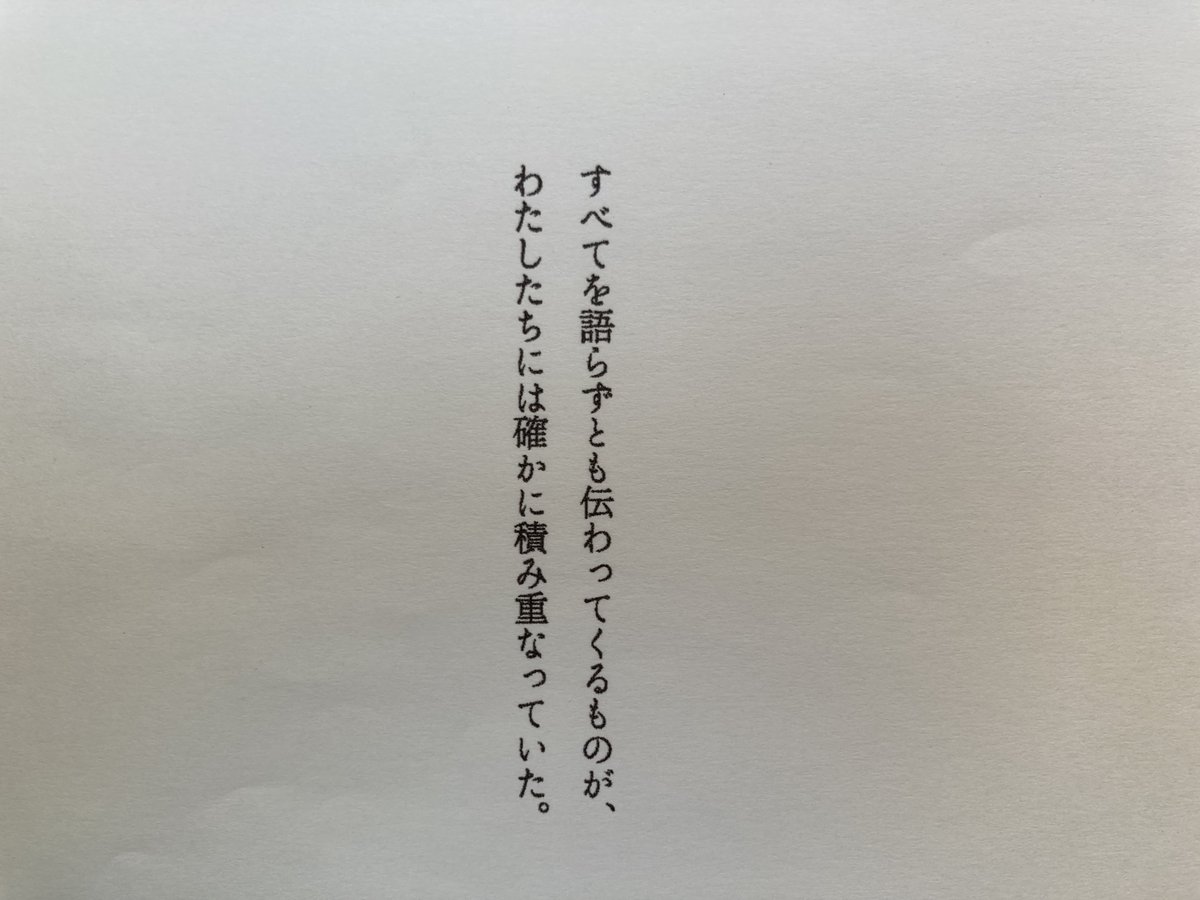 すべてを語らずとも伝わってくるものが、
わたしたちには確かに積み重なっていた。